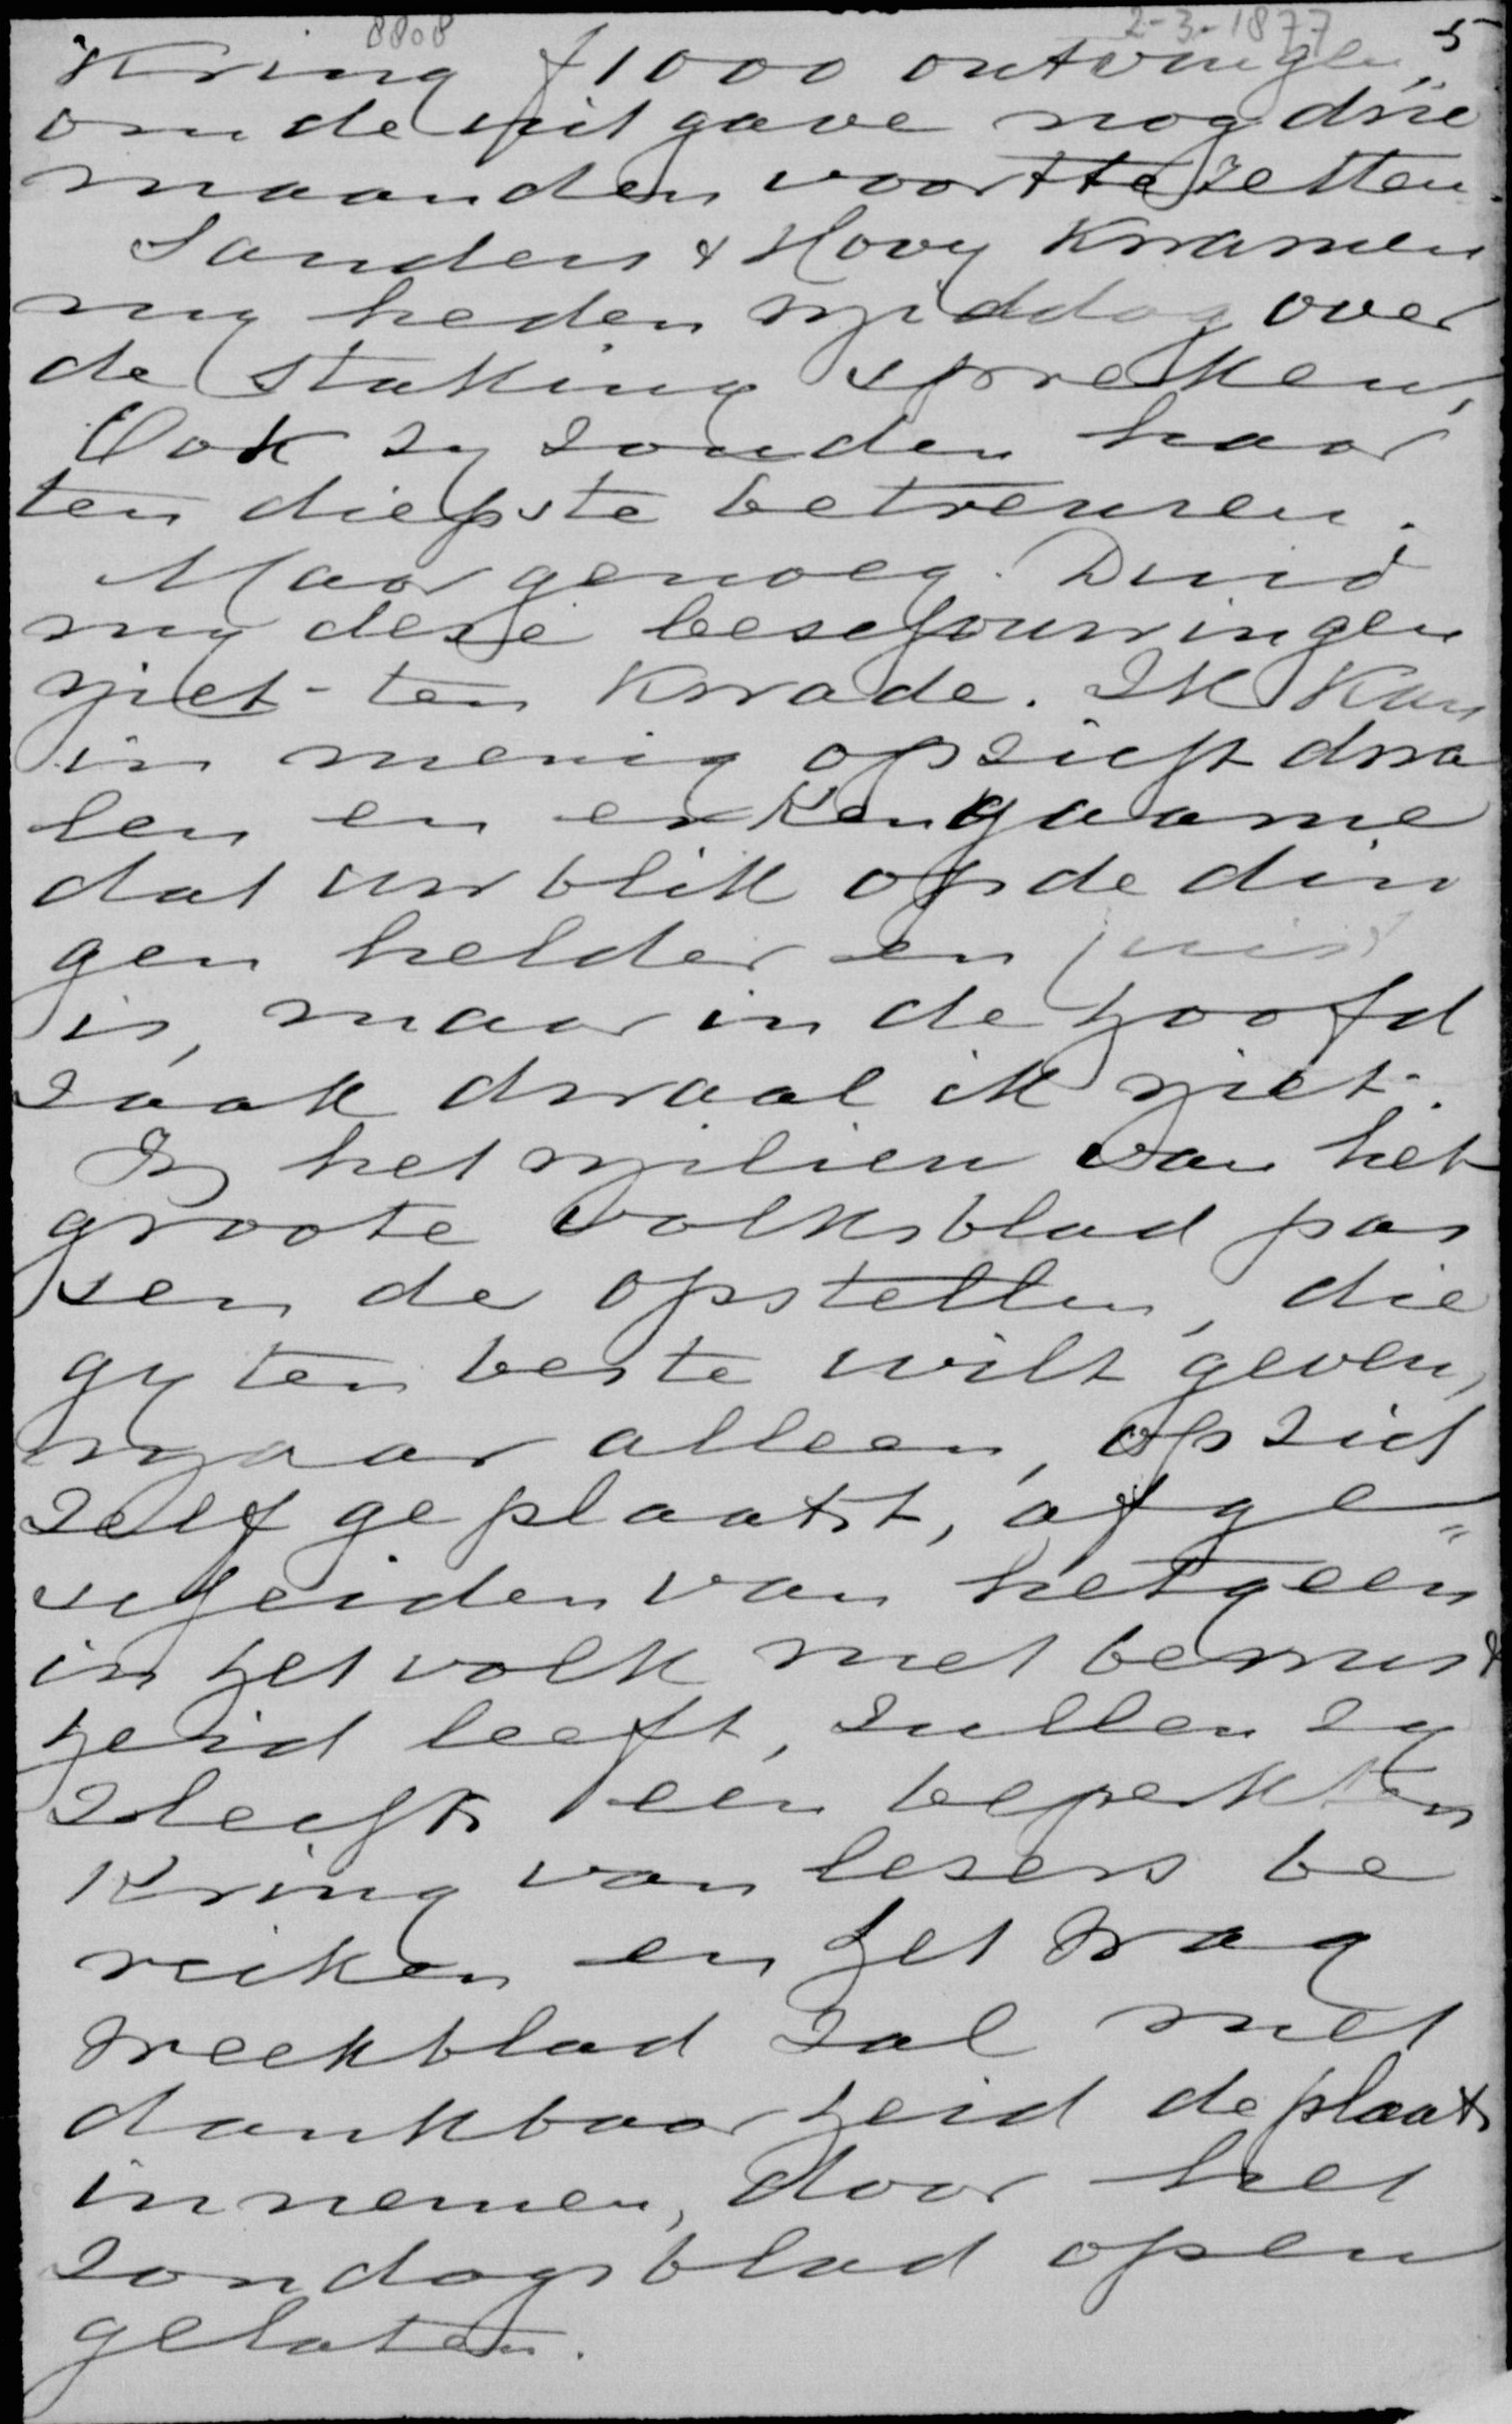 8808 2-3-1877 5
Kring f 1000 ontvangen,
om de uitgave nog drie
maanden voort te zetten.
Sanders & Hovy kwamen
my heden middag over
de staking spreken,
Ook zy zouden haar
ten diepste betreuren.
Maar genoeg. Duid
my deze beschouwingen
niet ten kwade. Ik kan
in menig opzicht dwa
len en erken gaarne
dat uw blik op de din
gen helder en juist
is, maar in de hoofd
zaak dwaal ik niet.
In het milieu van het
groote volksblad pas
sen de opstellen, die
gy ten beste wilt geven,
maar alleen, op zich
zelf geplaatst, afge=
scheiden van hetgeen
in het volk met bewust
heid leeft, zullen zy
slechts een beperkten
kring van lezers be
reiken en het
weekblad zal met
dankbaarheid de plaats
innemen, door het
zondagsblad open
gelaten.